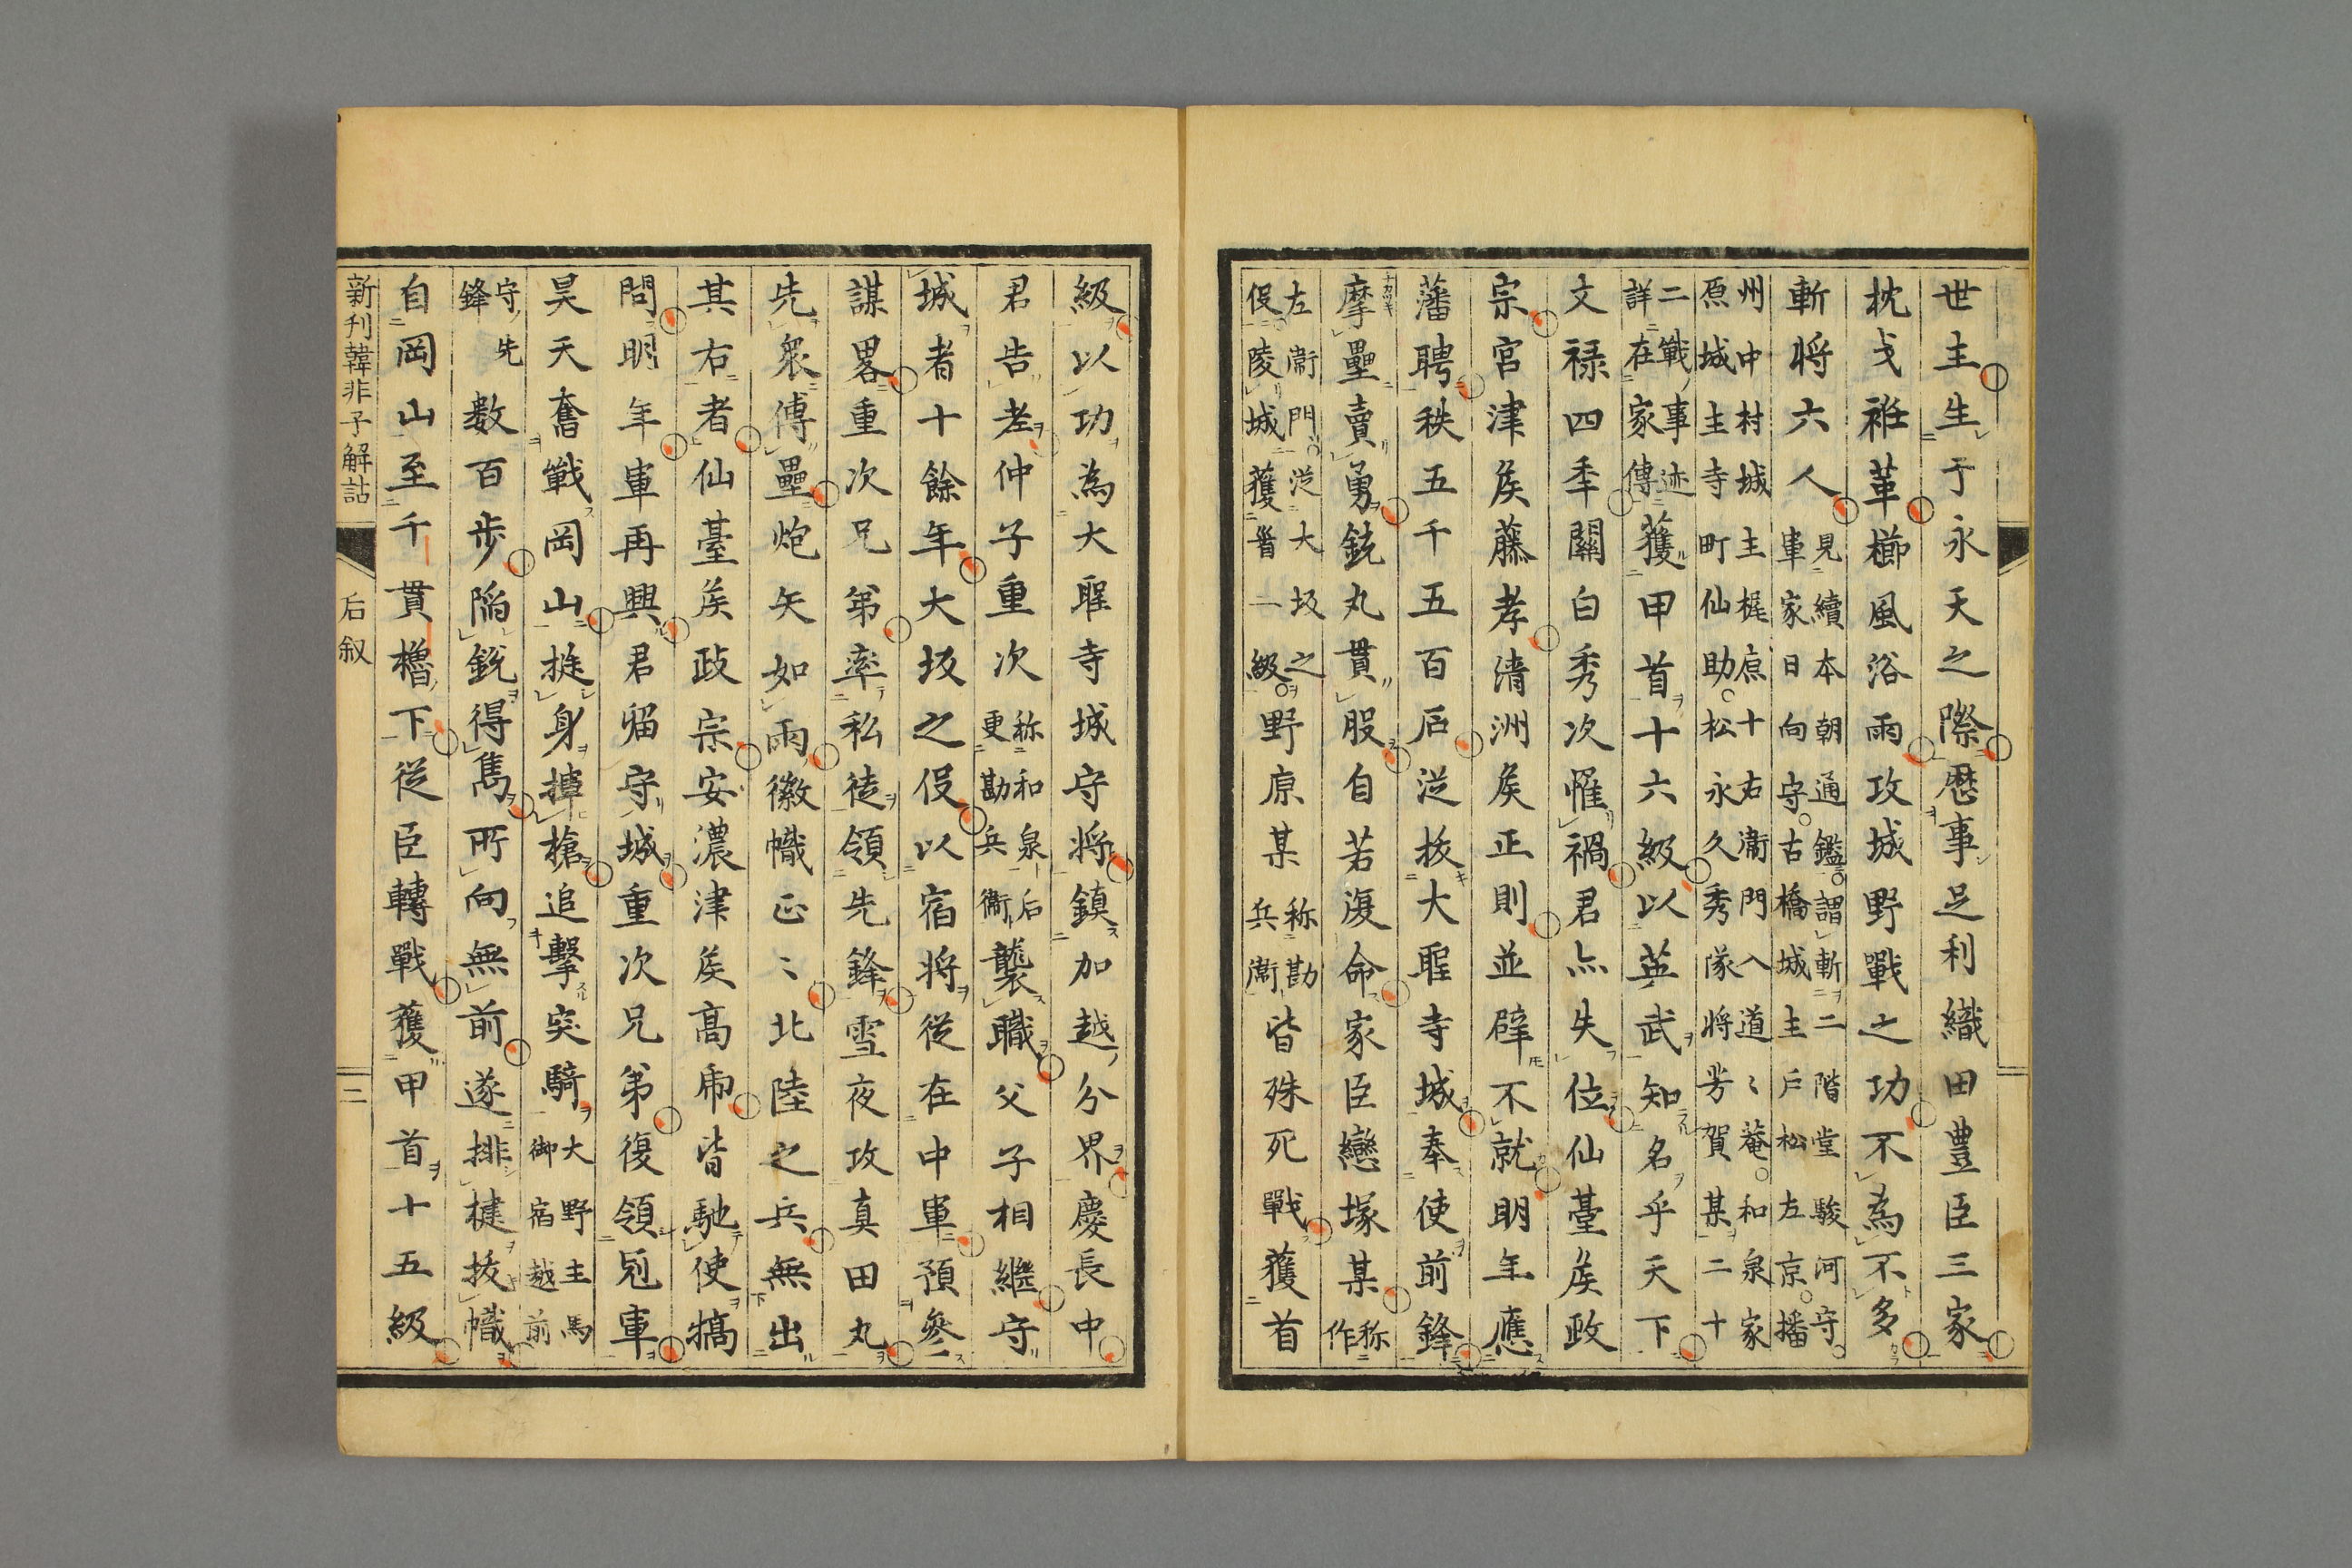 世主生于永天之際歷事足利織田豊臣三家
枕戈袵革櫛風浴雨攻城野戰之功不為不多
斬将六人
見續本朝通鑑謂斬二階堂駿河守
軍家日向守古橋城主戶松左京播
州中村城主梶原十右衛門入道〻菴和泉家
原城主寺町仙助松永久秀隊将芳賀某二十
二戰事迹
詳在家傳
獲甲首十六級以英武知名乎天下
文禄四季關白秀次罹禍君亦失位仙臺矦政
宗宮津矦藤孝清洲矦正則並辟不就明年應
藩聘秩五千五百后从拔大聖寺城奉使前鋒
摩壘賣勇銃丸貫股自若復命家臣戀塚某
称
作
左衛門从大坂之
役陵城獲首一級
野原某
称勘
兵衛
皆殊死戰獲首
級以功為大聖寺城守将鎮加越分界慶長中
君告老仲子重次
称和泉后
更勘兵衛
襲職父子相繼守
城者十餘年大坂之役以宿将從在中軍預參
謀畧重次兄弟率私徒領先鋒雪夜攻真田丸
先衆傅壘炮矢如雨徽幟正〻北陸之兵無出
其右者仙臺矦政宗安濃津矦髙虎皆馳使犒
問明年軍再興君留守城重次兄弟復領先軍
昊天奮戰岡山挺身掉槍追擊突騎
大野主馬
御宿越前
守先
鋒
数百步陥銳得雋所向無前遂排楗拔幟
自岡山至千貫櫓下從臣轉戰獲甲首十五級
新刊韓非子解詁
后叙
二